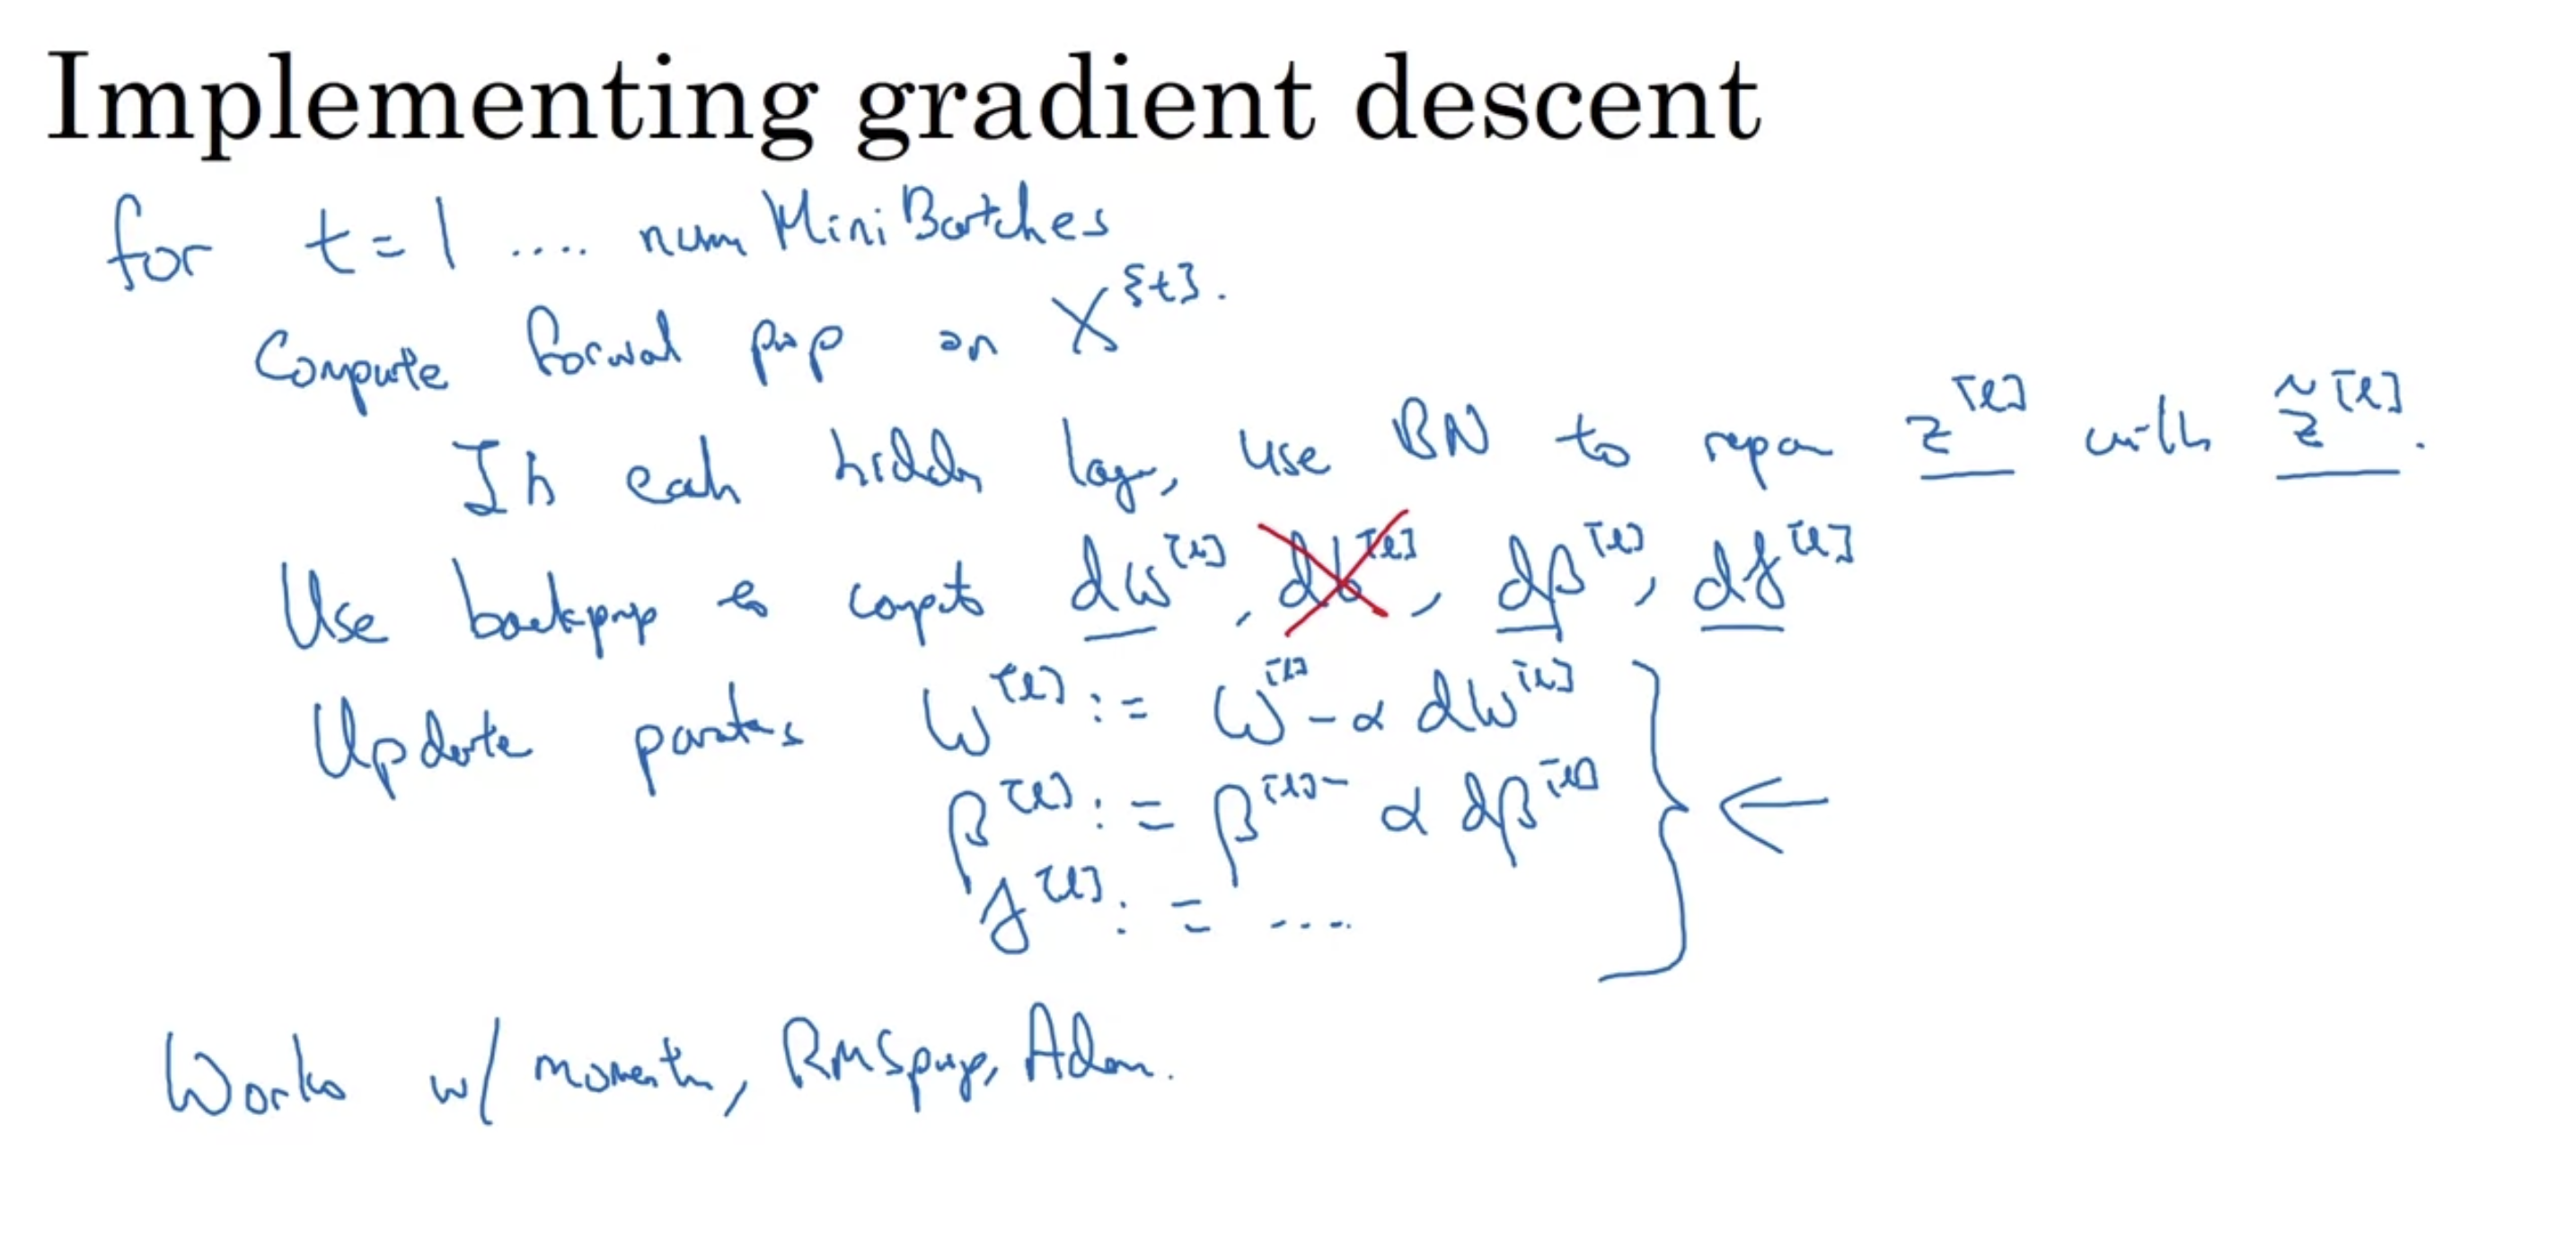 Implementing gradient descent
for t = 1 .... num Mini Batches
Compute forward prop on X^{t}.
In each hidden layer, use BN to replace z^[l] with z̃^[l].
Use backprop to compute dW^[l], db^[l], dβ^[l], dγ^[l]
Update parameters W^[l] := W^[l] - α dW^[l]
β^[l] := β^[l] - α dβ^[l]
γ^[l] := ....
Works w/ momentum, RMSprop, Adam.